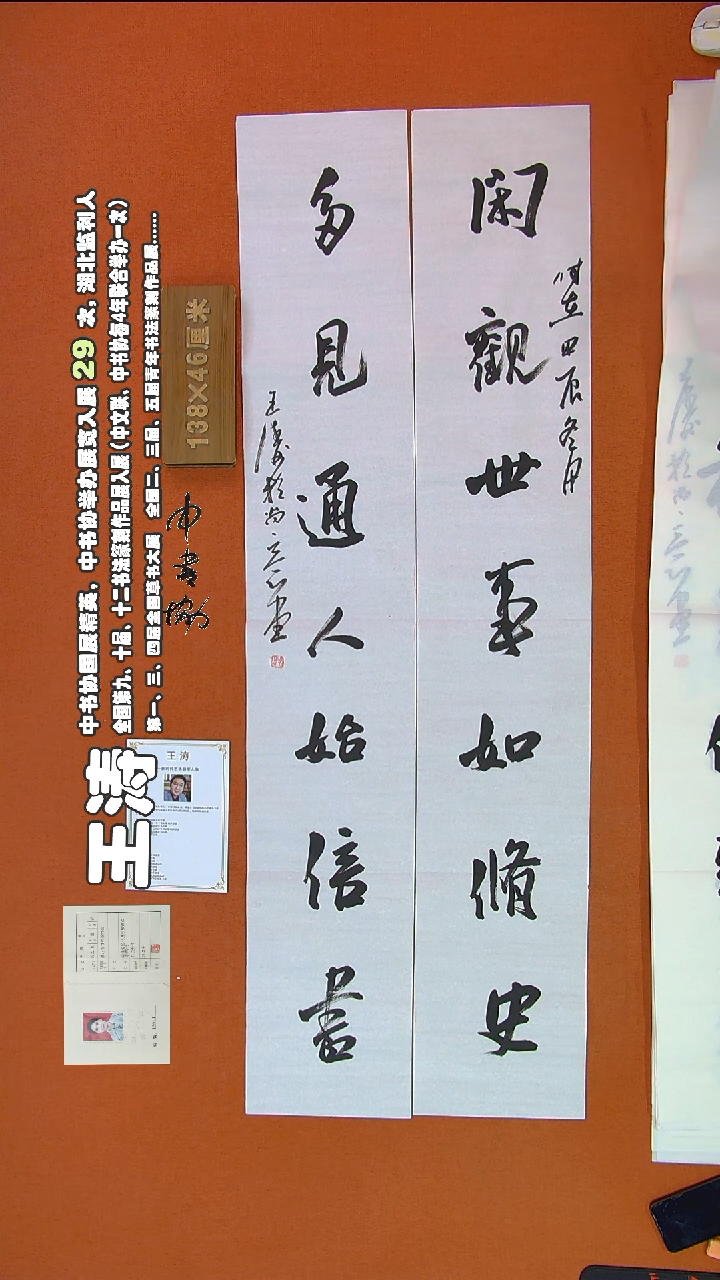 閑觀世事如脩史
時在甲辰冬月
多見通人始信書
王濤於尚立心堂
138×46厘米
中书协
中书协国展精英，中书协举办展览入展 29 次，湖北监利人
全国第九、十届、十二书法篆刻作品展入展（中文联、中书协每4年联合举办一次）
第一、三、四届全国草书大展 全国二、三届、五届青年书法篆刻作品展……
王涛
王 涛